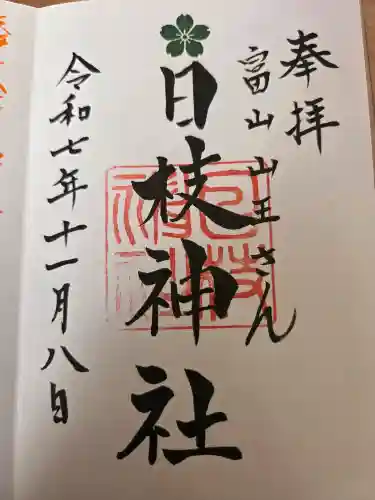 奉拝
富山山王さん
日枝神社
令和七年十一月八日